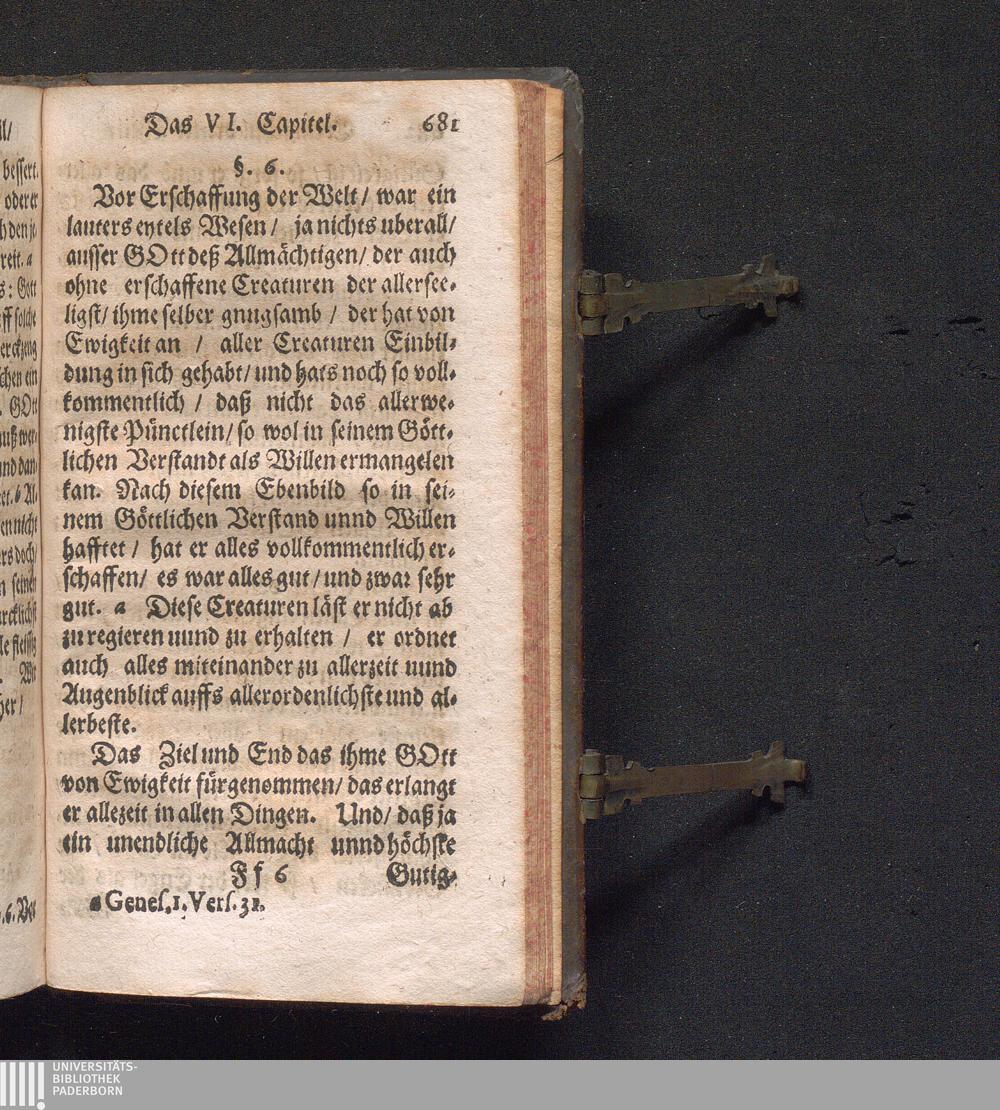 Das VI. Capitel. 681
§. 6.
Vor Erschaffung der Welt / war ein
lauters eytels Wesen / ja nichts uberall /
ausser GOtt deß Allmächtigen / der auch
ohne erschaffene Creaturen der allersee-
ligst / ihme selber gnugsamb / der hat von
Ewigkeit an / aller Creaturen Einbil-
dung in sich gehabt / und hats noch so voll-
kommentlich / daß nicht das allerwe-
nigste Pünctlein / so wol in seinem Gött-
lichen Verstandt als Willen ermangelen
kan. Nach diesem Ebenbild so in sei-
nem Göttlichen Verstand unnd Willen
hafftet / hat er alles vollkommentlich er-
schaffen / es war alles gut / und zwar sehr
gut. a Diese Creaturen läst er nicht ab
zu regieren uund zu erhalten / er ordnet
auch alles miteinander zu allerzeit uund
Augenblick auffs allerordenlichste und al-
lerbeste.
Das Ziel und End das ihme GOtt
von Ewigkeit fürgenommen / das erlangt
er allezeit in allen Dingen. Und / daß ja
ein unendliche Allmacht unnd höchste
Ff 6 Gutig-
a Genes. 1. Vers. 31.
bessert.
oder er
reit. a
: Gott
ff solche
chen ein
GOtt
und dan-
en nicht
n seinen
le fleissig
UNIVERSITÄTS-
BIBLIOTHEK
PADERBORN